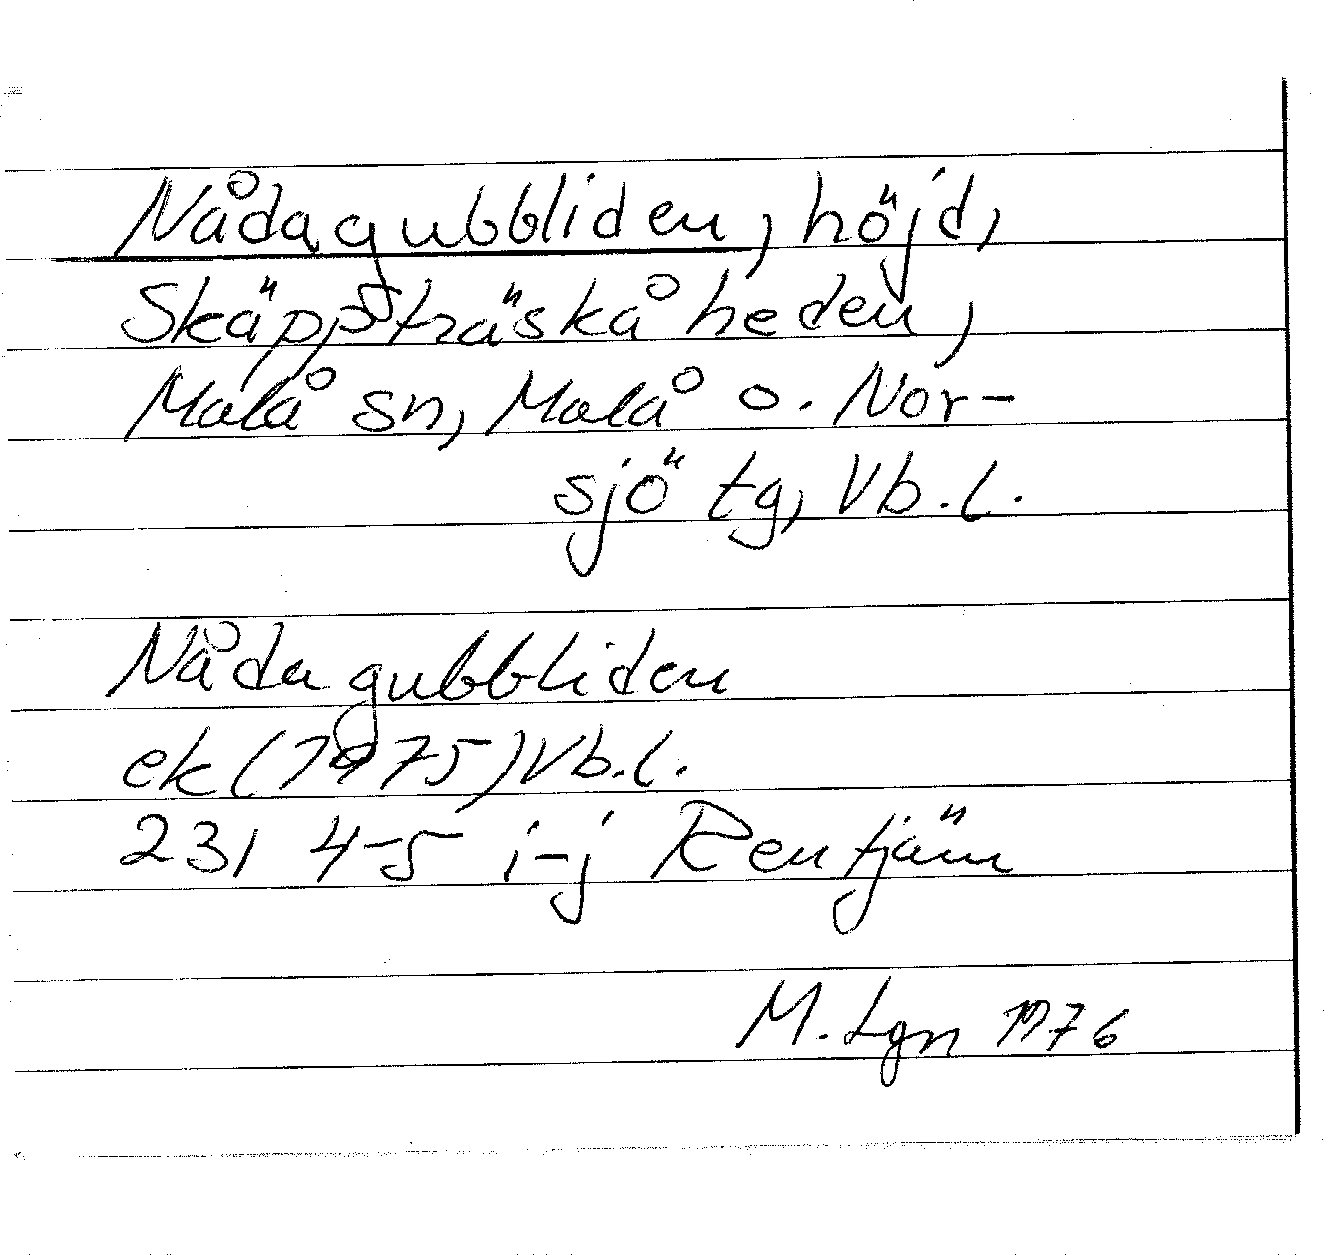 Nådagubbliden, höjd,
Skäppträskåheden,
Malå sn, Malå o. Nor-
sjö tg, Vb.l.
Nådagubbliden
ek (1975) Vb.l.
231 4-5 i-j Rentjärn
M. Lgn 1976